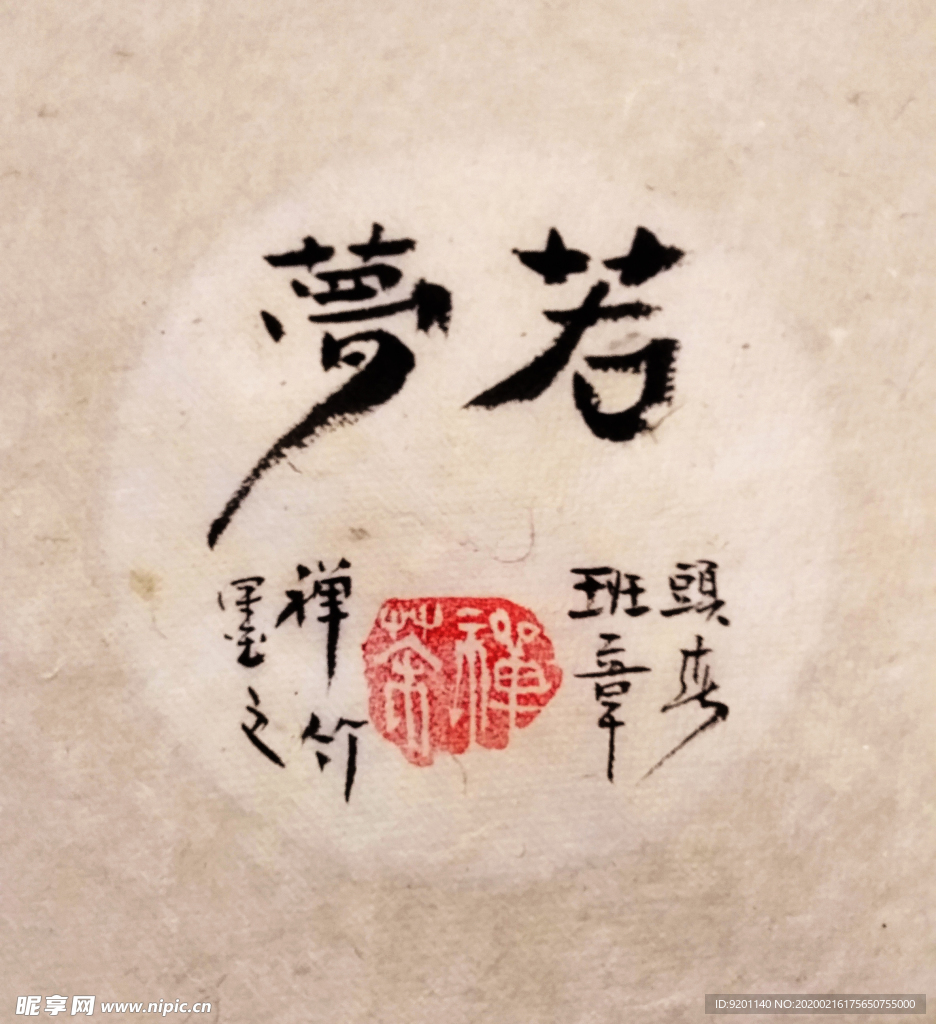 若夢
頭春
班章
禪茶
禅竹
墨之
昵享网 www.nipic.cn
ID:9201140 NO:20200216175650755000